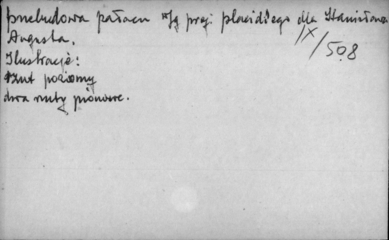 przebudowa pałacu wg proj. Placidiego dla Stanisława
Augusta.
IX/508
Ilustracje:
rzut poziomy
dwa rzuty pionowe.